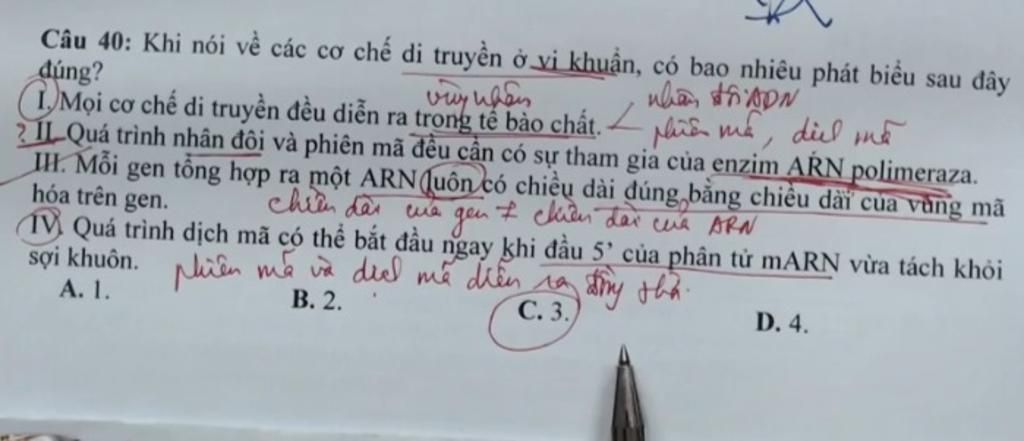 Câu 40: Khi nói về các cơ chế di truyền ở vi khuẩn, có bao nhiêu phát biểu sau đây
đúng?
vùng nhân
nhân đôi ADN
I. Mọi cơ chế di truyền đều diễn ra trong tế bào chất.
phiên mã, dịch mã
? II. Quá trình nhân đôi và phiên mã đều cần có sự tham gia của enzim ARN polimeraza.
III. Mỗi gen tổng hợp ra một ARN luôn có chiều dài đúng bằng chiều dài của vùng mã
hóa trên gen.
chiều dài của gen ≠ chiều dài của ARN
IV. Quá trình dịch mã có thể bắt đầu ngay khi đầu 5' của phân tử mARN vừa tách khỏi
sợi khuôn.
phiên mã và dịch mã diễn ra đồng thời.
A. 1.
B. 2.
C. 3.
D. 4.